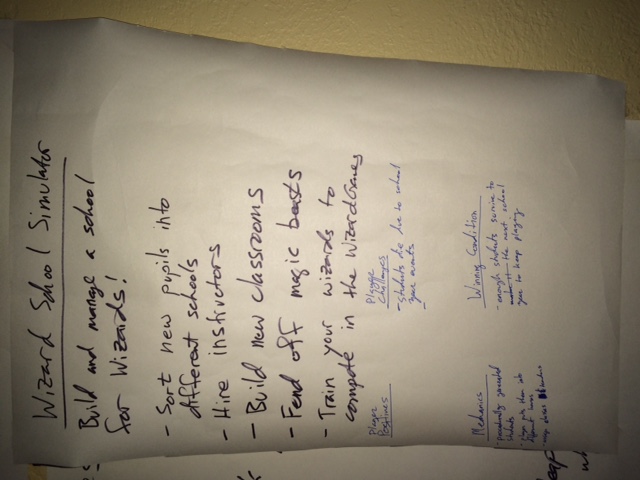 Wizard School Simulator
Build and manage a school
for Wizards!
- Sort new pupils into
different schools
- Hire instructors
- Build new classrooms
- Fend off magic beasts
- Train your wizards to
compete in the WizardGames
Player
Positives
Player
Challenges
- students die due to school
year events
Mechanics
- randomly generated
students
Winning Condition
- enough students survive to
the next school
year to keep playing